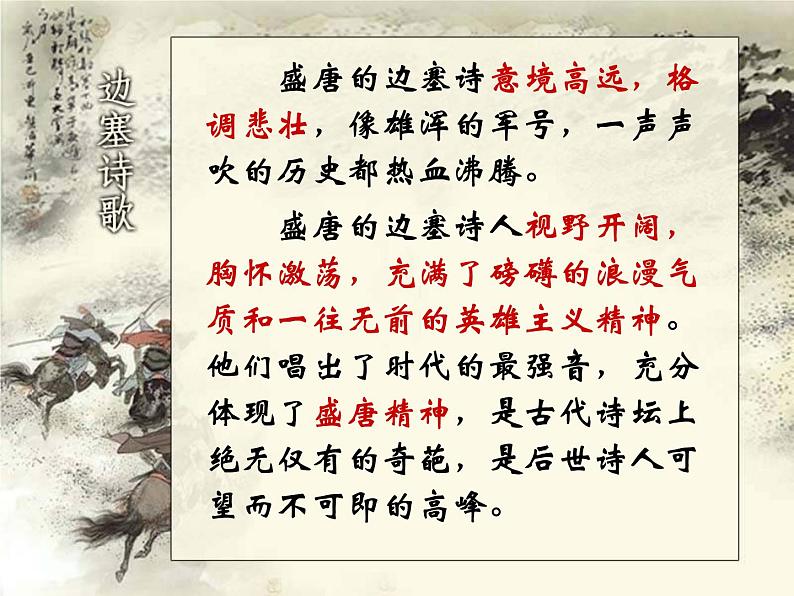 边塞诗歌
盛唐的边塞诗意境高远，格
调悲壮，像雄浑的军号，一声声
吹的历史都热血沸腾。
盛唐的边塞诗人视野开阔，
胸怀激荡，充满了磅礴的浪漫气
质和一往无前的英雄主义精神。
他们唱出了时代的最强音，充分
体现了盛唐精神，是古代诗坛上
绝无仅有的奇葩，是后世诗人可
望而不可即的高峰。